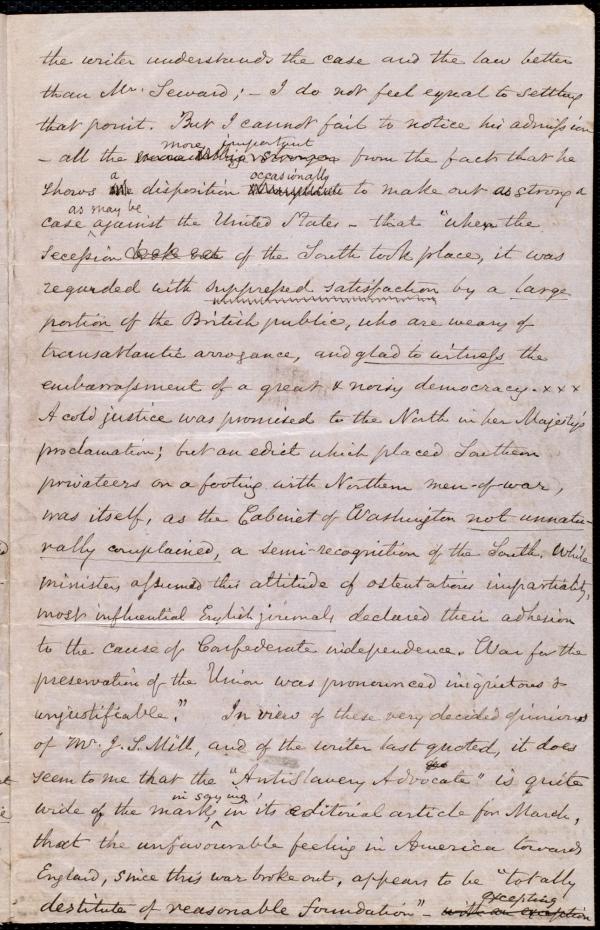 the writer understands the case and the law better
than Mr. Seward; – I do not feel equal to settling
that point. But I cannot fail to notice his admission
more important
– all the from the fact that he
a occasionally
shows disposition to make out as strong a
as may be
case against the United States – that "when the
Secession of the South took place, it was
regarded with suppressed satisfaction by a large
portion of the British public, who are weary of
transatlantic arrogance, and glad to witness the
embarrassment of a great & noisy democracy. x x x
A cold justice was promised to the North in her Majesty's
proclamation; but an edict which placed Southern
privateers on a footing with Northern men-of-war,
was itself, as the Cabinet of Washington not unnatu-
rally complained, a semi-recognition of the South. While
ministers assumed this attitude of ostentatious impartiality,
most influential English journals declared their adhesion
to the cause of Confederate independence. War for the
preservation of the Union was pronounced iniquitous &
unjustifiable." In view of these very decided opinions
of Mr. J. S. Mill, and of the writer last quoted, it does
seem to me that the "Antislavery Advocate" is quite
in saying,
wide of the mark, in its editorial article for March,
that the unfavourable feeling in America towards
England, since this war broke out, appears to be "totally
excepting
destitute of reasonable foundation" – with an exception